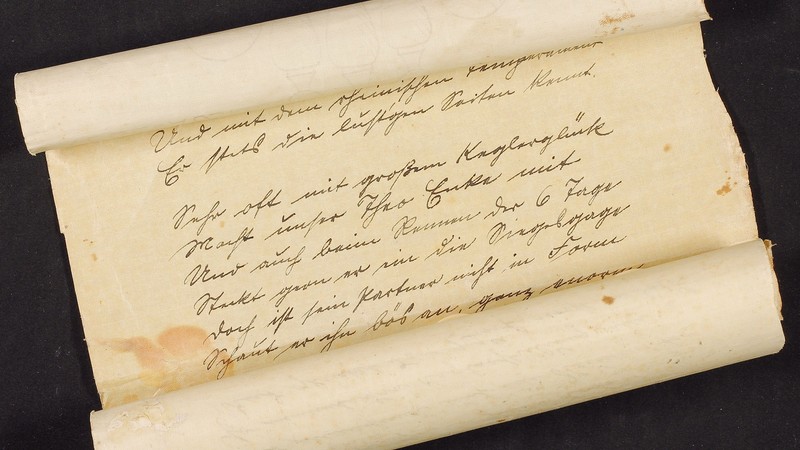 Und mit dem rheinischen Temperament
Er stets die lustgen Seiten kennt.
Sehr oft mit großem Keglerglück
Macht unser Theo Enke mit
Und auch beim Rennen der 6 Tage
Steckt gern er ein die Siegesgage
Doch ist sein Partner nicht in Form
Schaut er ihn bös an, ganz enorm